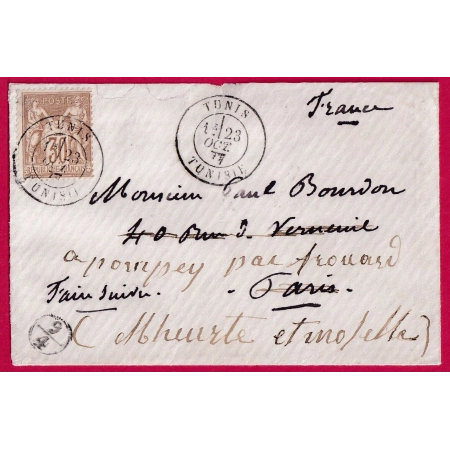 POSTE
30
TUNIS
23
TUNISIE
TUNIS
1E 23
OCT.
77
TUNISIE
France
Monsieur Paul Bourdon
40 Rue d. Verneuil
a pompey par frouard
Faire suivre. - Paris -
(Mheurte et moselle)
9/4